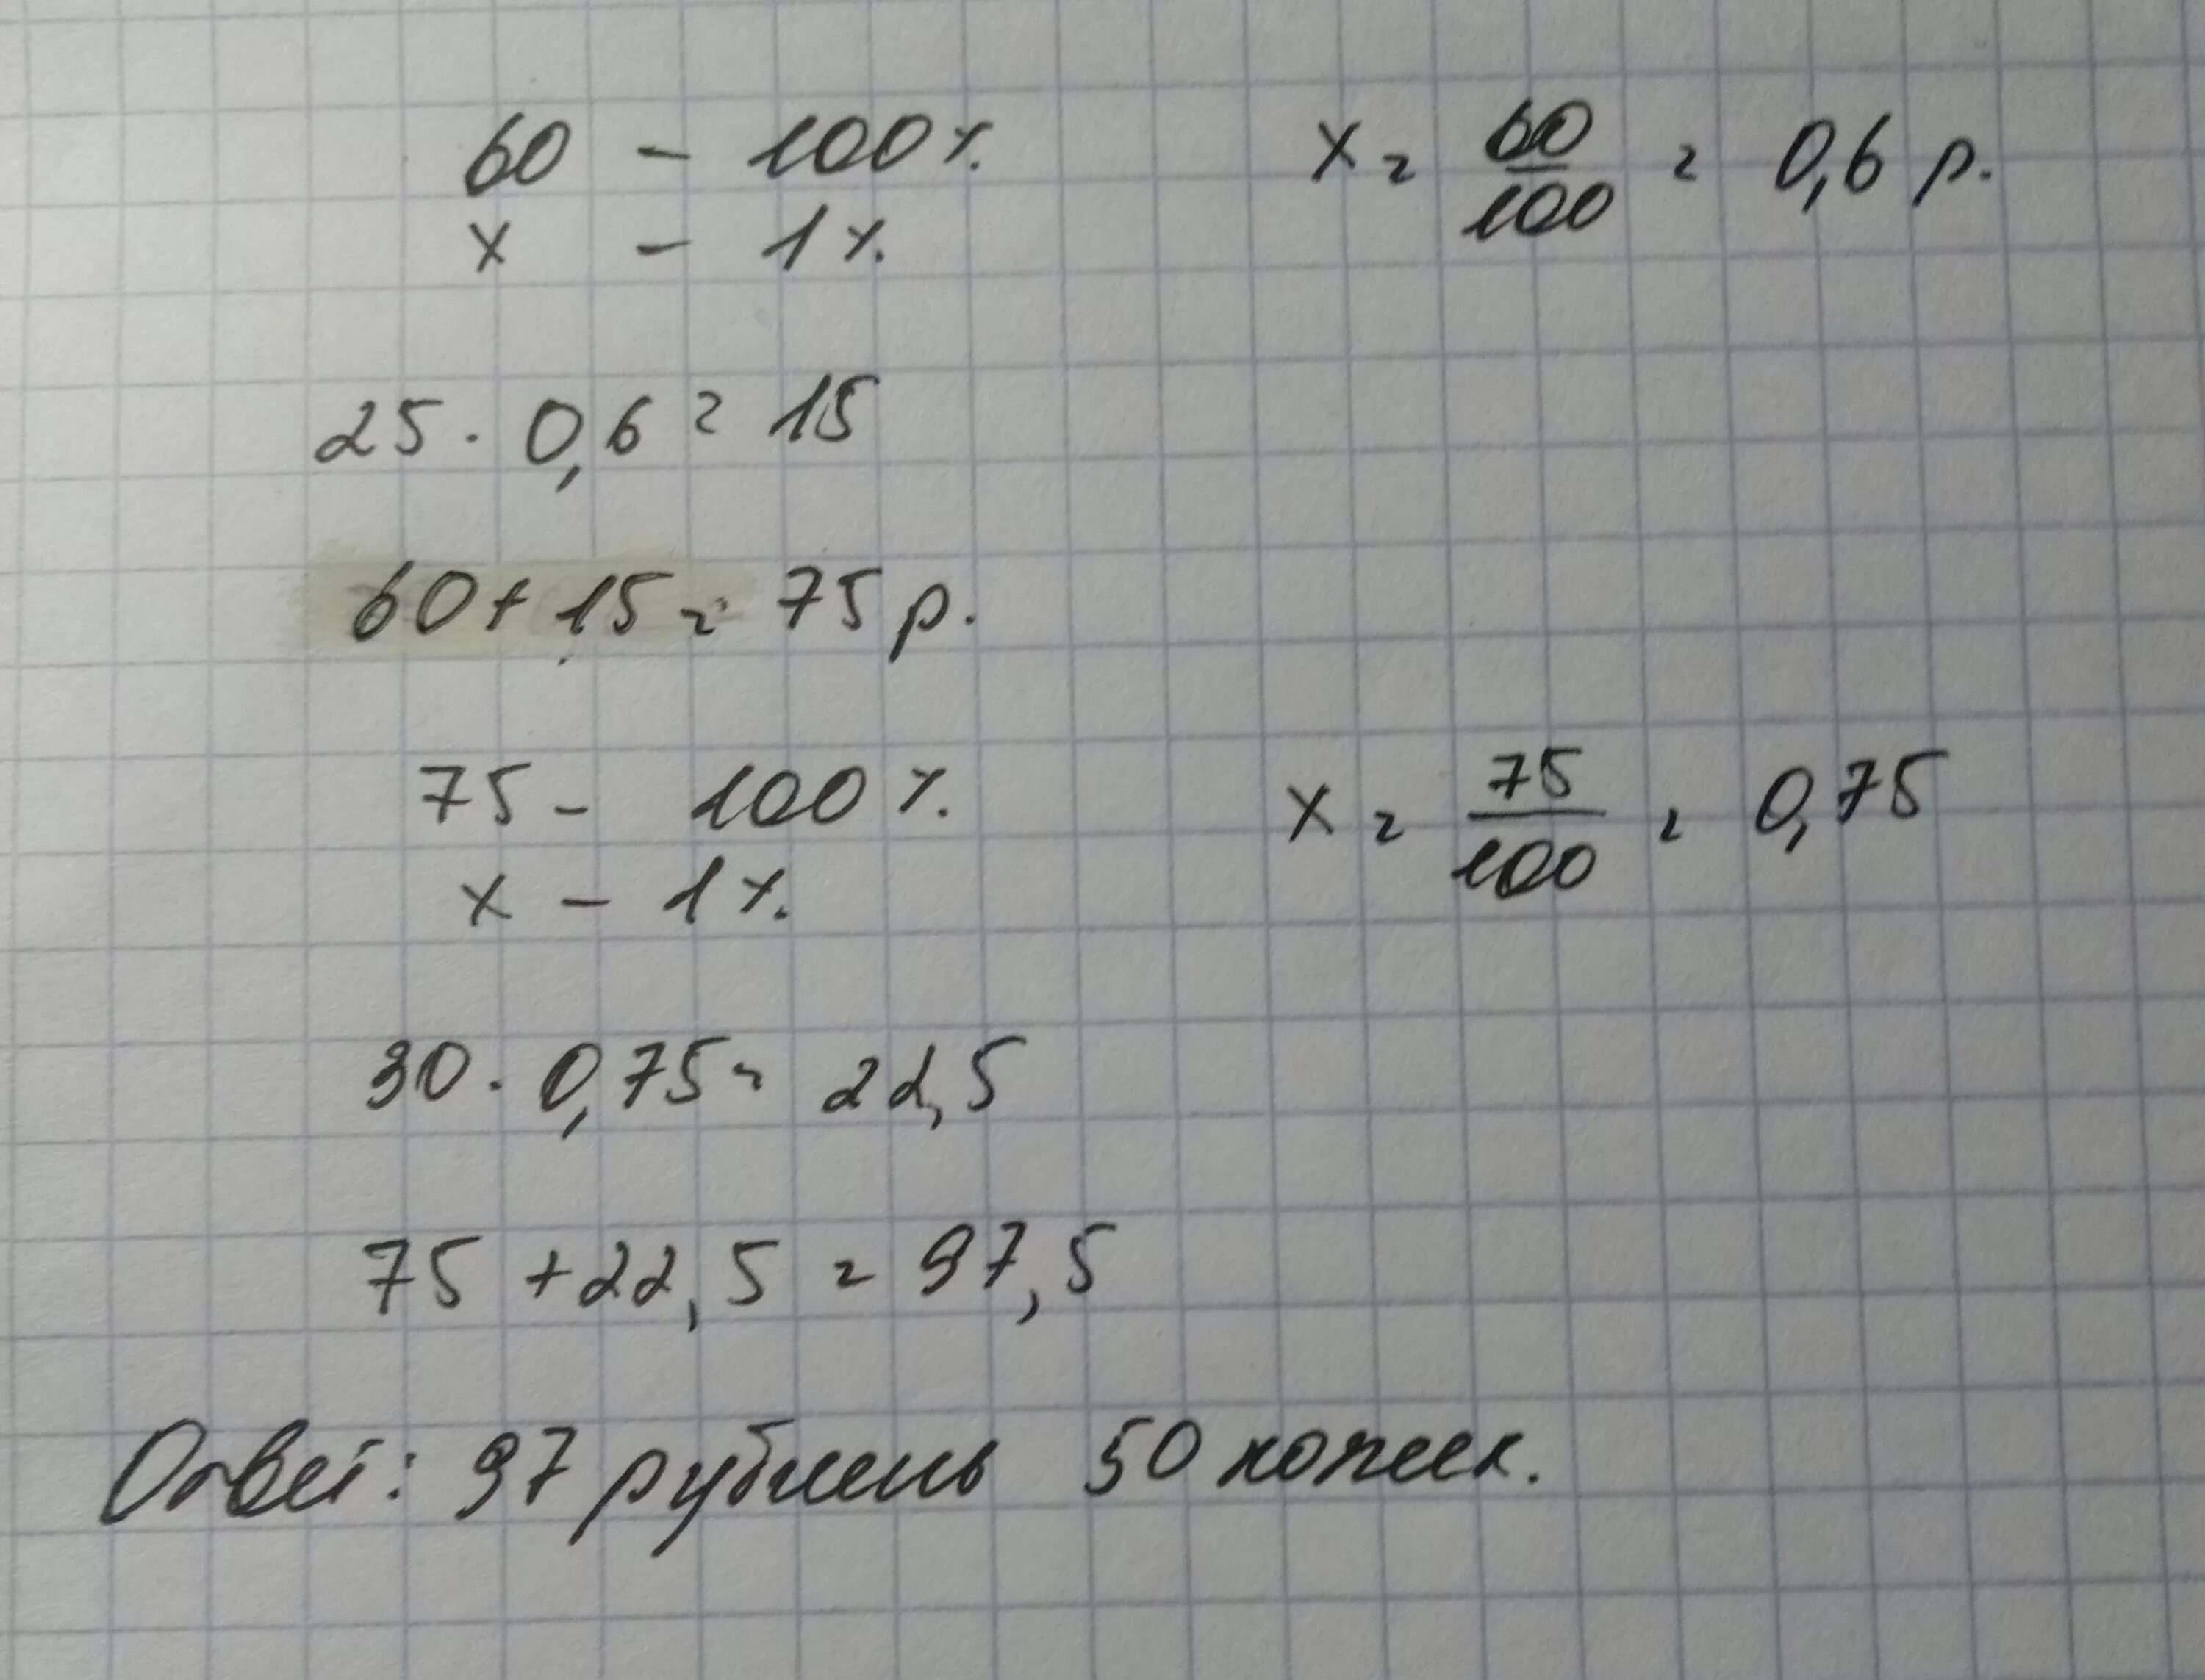 60 - 100%
x = 60/100 = 0,6 р.
x - 1%
25 · 0,6 = 15
60 + 15 = 75 р.
75 - 100%
x = 75/100 = 0,75
x - 1%
30 · 0,75 = 22,5
75 + 22,5 = 97,5
Ответ: 97 рублень 50 копеек.